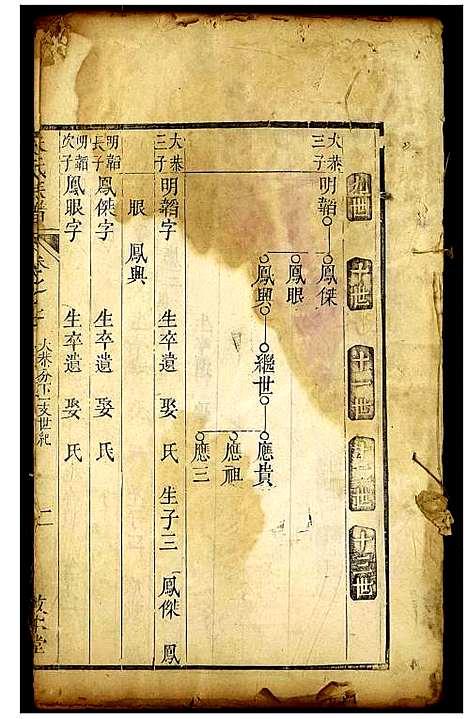 九世
十世
十一世
十二世
十三世
大恭三子 明韜
鳳傑
鳳眼
鳳興
繼世
應貴
應祖
應三
大恭三子 明韜字 生卒遺 娶 氏 生子三 鳳傑 鳳
眼 鳳興
明韜長子 鳳傑字 生卒遺 娶 氏
明韜次子 鳳眼字 生卒遺 娶 氏
氏族譜
卷之
大恭分下一支世紀
二
堂